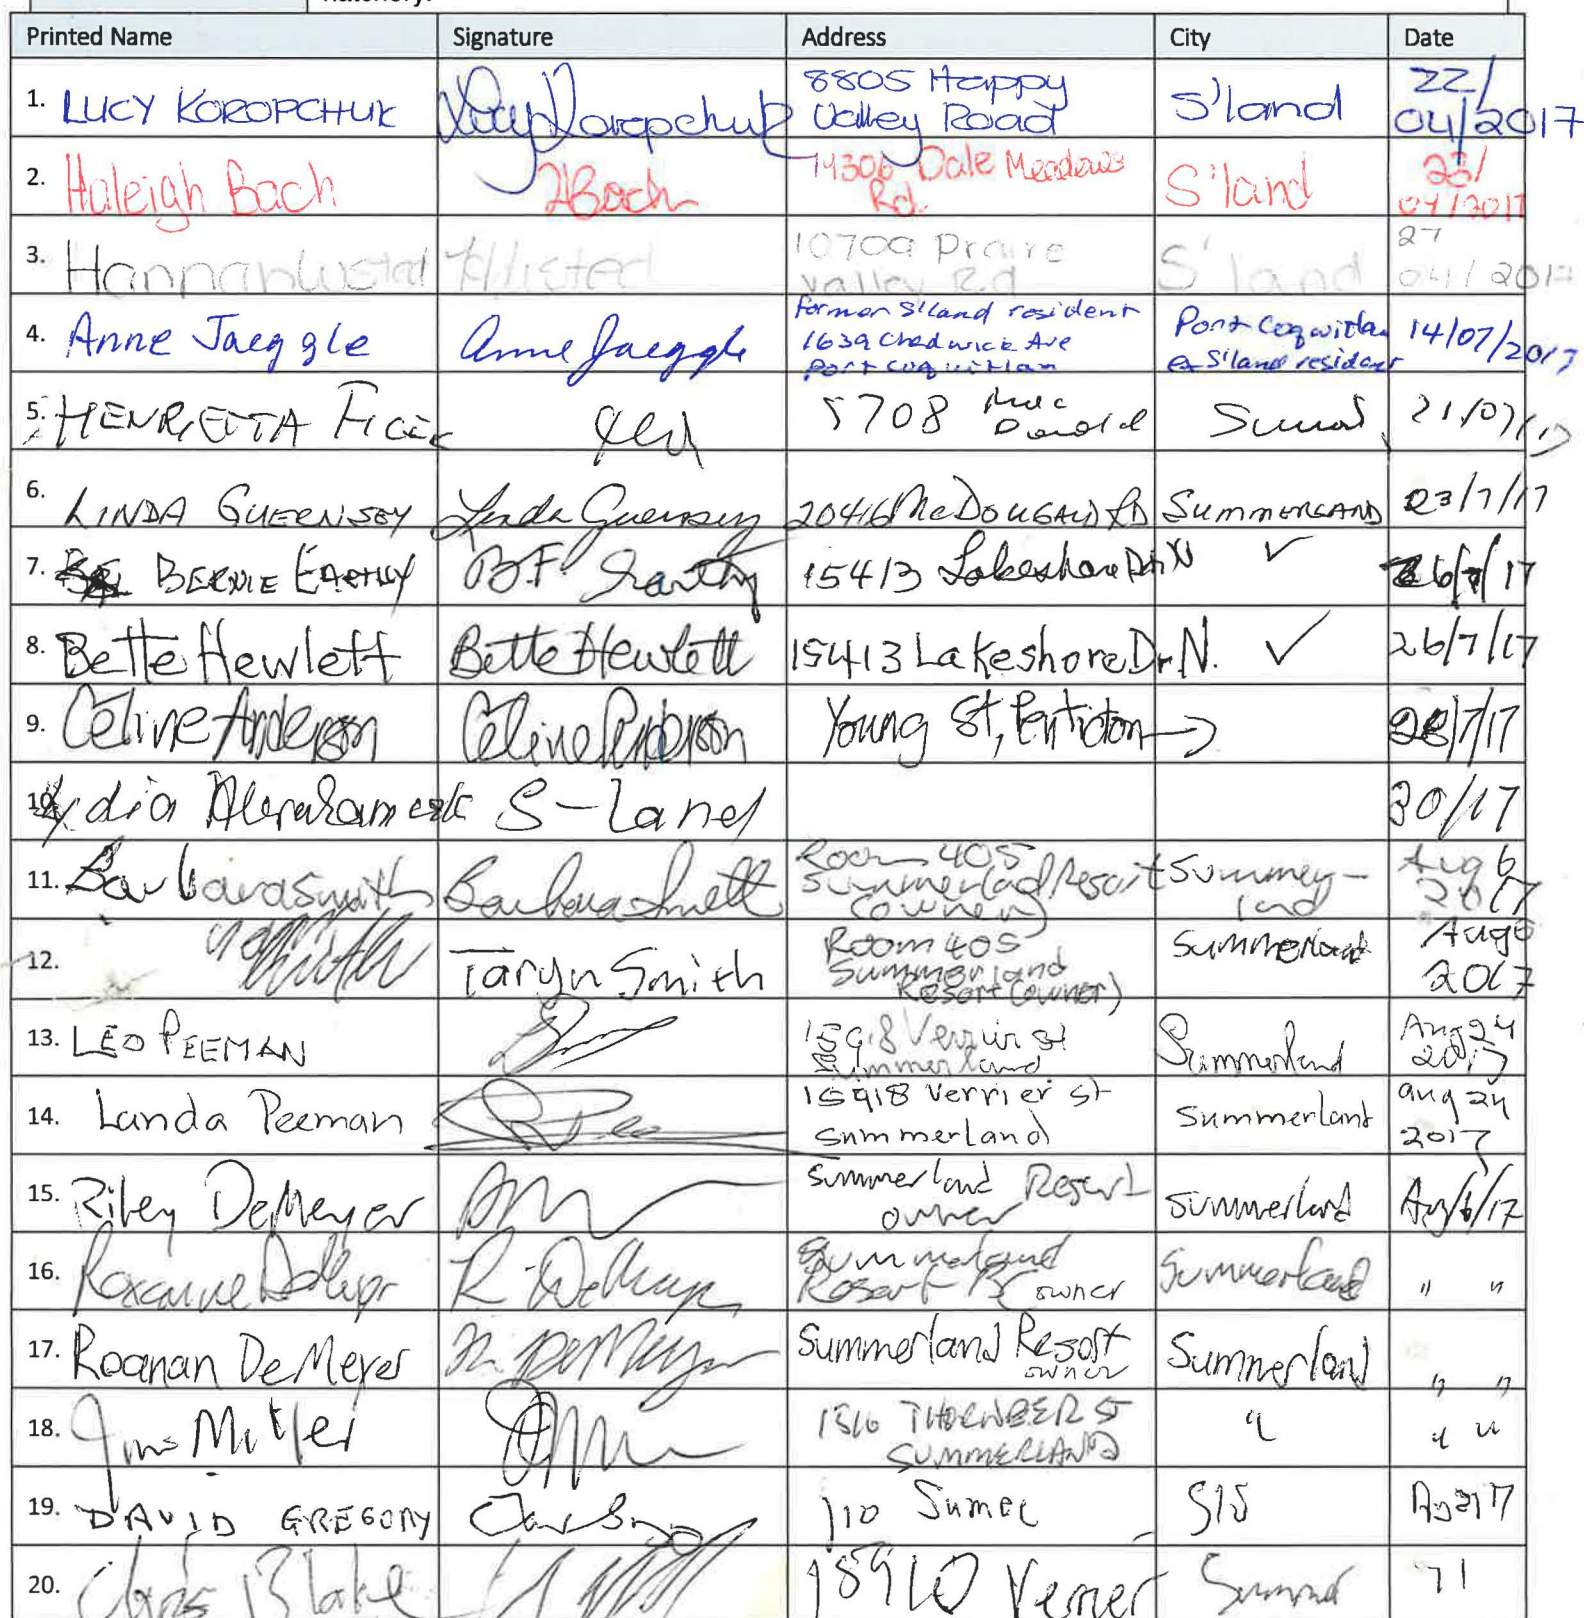 hatchery.
Printed Name Signature Address City Date
1. LUCY KOROPCHUK Lucy Koropchuk 8805 Happy Valley Road S'land 22/04/2017
2. Haleigh Bach HBach 14306 Dale Meadows Rd. S'land 23/04/2017
3. Hannah Wusted HWusted 10709 Praire valley Rd S'land 27 04/2017
4. Anne Jaeggle Anne Jaeggle former S'land resident 1639 Chadwick Ave Port Coquitlam Port Coquitlam ex S'land resident 14/07/2017
5. HENRIETTA 5708 21/07/17
6. LINDA GUERNSEY Linda Guernsey 20416 McDOUGALD RD SUMMERLAND 23/7/17
7. BERNIE EARTHY B.F. Earthy 15413 Lakeshore Dr. N ✓ 26/7/17
8. Bette Hewlett Bette Hewlett 15413 Lakeshore Dr. N. ✓ 26/7/17
9. Celine Anderson Celine Anderson Young St, Penticton → 28/7/17
10. Lydia S-Land 30/17
11. Barbara Smith Barbara Smith Room 405 Summerland Resort (owner) Summerland Aug 6 2017
12. Taryn Smith Room 405 Summerland Resort (owner) Summerland Aug 6 2017
13. LEO PEEMAN 15918 Verrier st Summerland Summerland Aug 24 2017
14. Landa Peeman 15918 Verrier st summerland summerland aug 24 2017
15. Riley DeMeyer Summerland Resort owner Summerland Aug/6/17
16. Roxanne DeMeyer R. DeMeyer Summerland Resort owner Summerland " "
17. Roanan DeMeyer R. DeMeyer Summerland Resort owner Summerland " "
18. 1516 THORNBER ST SUMMERLAND " " "
19. DAVID GREGORY 110
20. Chris Blake